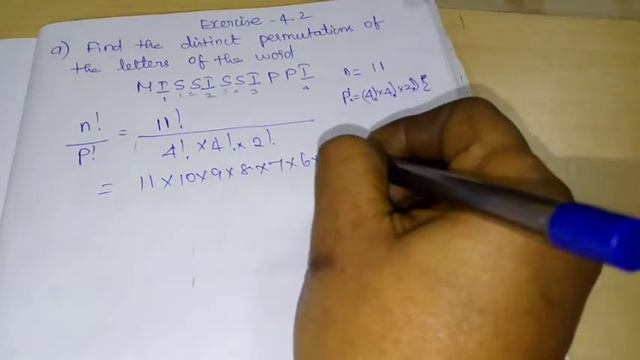 Exercise - 4.2
a) Find the distinct permutations of
the letters of the word
MISSISSIPPI
1 1 2 2 3 4 3 4
n = 11
P! = (4! × 4! × 2!) {
n! / P! = 11! / 4! × 4! × 2!
= 11 × 10 × 9 × 8 × 7 × 6 ×